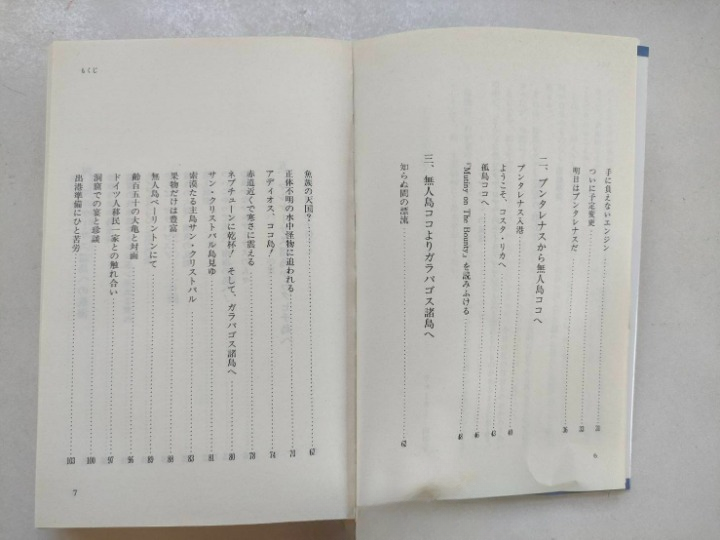 手に負えないエンジン
ついに予定変更
明日はプンタレナスだ 36
二、プンタレナスから無人島ココへ
プンタレナス入港 40
ようこそ、コスタ・リカへ 43
孤島ココへ 46
『Mutiny on The Bounty』を読みふける 48
三、無人島ココよりガラパゴス諸島へ
知らぬ間の漂流 62
6
もくじ
魚族の天国？ 67
正体不明の水中怪物に追われる
アディオス、ココ島！ 74
赤道近くで寒さに震える 78
ネプチューンに乾杯！ そして、ガラパゴス諸島へ 80
サン・クリストバル島見ゆ 81
索漠たる主島サン・クリストバル 83
果物だけは豊富 88
無人島ベーリントンにて 89
齢百五十の大亀と対面 96
ドイツ人移民一家との触れ合い 97
洞窟での宴と珍談 100
出港準備にひと苦労 103
7